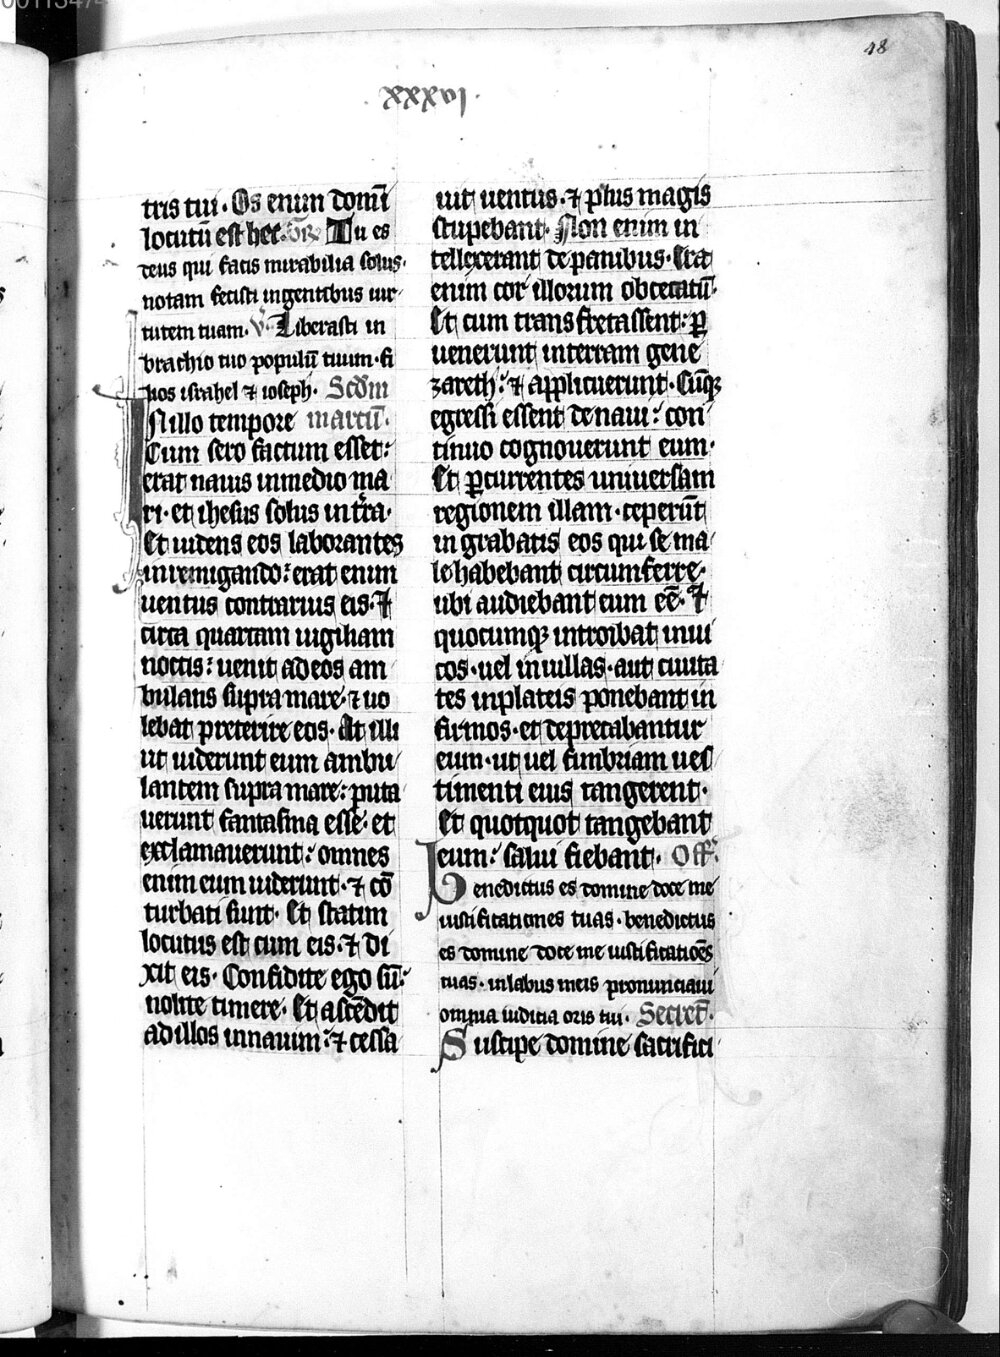 48
lxxxx
tris tui. Os enim domı̅
locutu̅ est hec. Gr̅. Tu es
deus qui facis mirabilia solus.
notam fecisti ingentibus uir
tutem tuam. V. Liberasti in
brachio tuo populu̅ tuum. fi
lios israhel ⁊ ioseph. Scd̅m
In illo tempore marcu̅.
Cum sero factum esset:
erat nauis inmedio ma
ri. et ihesus solus in tr̅ra.
Et uidens eos laborantes
inremigando: erat enim
uentus contrarius eis. ⁊
circa quartam uigiliam
noctis: uenit adeos am
bulans supra mare. ⁊ uo
lebat preterire eos. At illi
ut uiderunt eum ambu
lantem supra mare: puta
uerunt fantasma esse. et
exclamauerunt: omnes
enim eum uiderunt. ⁊ co̅
turbati sunt. Et statim
locutus est cum eis. ⁊ di
xit eis. Confidite ego su̅.
nolite timere. Et asce̅dit
adillos innauim: ⁊ cessa
uit uentus. ⁊ plus magis
stupebant. Non enim in
tellexerant depanibus. Erat
enim cor illorum obcecatu̅.
Et cum transfretassent: ꝑ
uenerunt interram gene
zareth: ⁊ applicuerunt. Cu̅qꝫ
egressi essent denaui: con
tinuo cognouerunt eum.
Et ꝑcurrentes uniuersam
regionem illam. ceperu̅t
in grabatis eos qui se ma
le habebant circumferre.
ubi audiebant eum ee̅. ⁊
quocumqꝫ introibat inui
cos. uel inuillas. aut ciuita
tes inplateis ponebant in
firmos. et deprecabantur
eum. ut uel fimbriam ues
timenti eius tangerent.
Et quotquot tangebant
eum: salui fiebant. Off̅.
Benedictus es domine doce me
iustificationes tuas. benedictus
es domine doce me iustificatio̅es
tuas. inlabiis meis pronunciaui
omnia iudicia oris tui. Secret̅.
Suscipe domine sacrifici